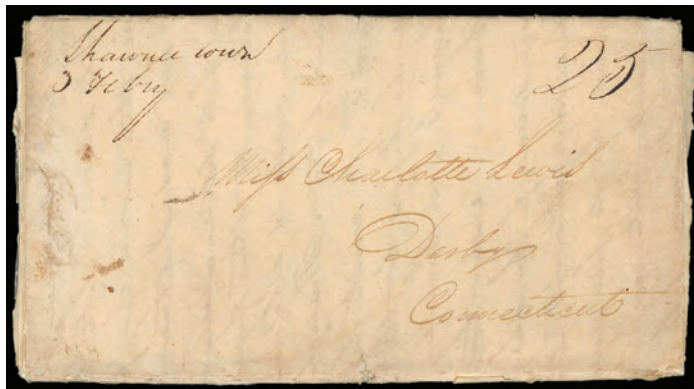 Shawnee town
3 Feby
25
Miſs Charlotte Lewis
Derby
Connecticut